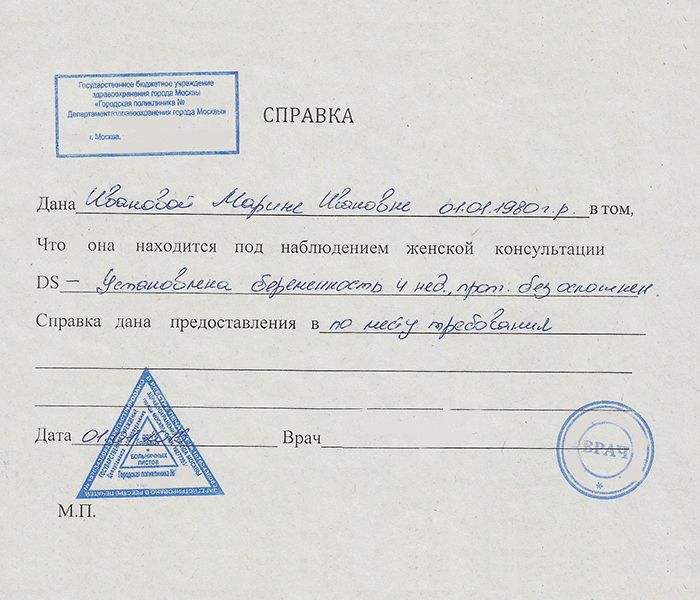 Государственное бюджетное учреждение
здравоохранения города Москвы
«Городская поликлиника №
Департамента здравоохранения города Москвы»
г. Москва.
СПРАВКА
Дана Ивановой Марине Ивановне 01.01.1980 г.р. в том,
Что она находится под наблюдением женской консультации
DS – Установлена беременность 4 нед., прот. без осложнен.
Справка дана предоставления в по месту требования
Дата 01. Врач
БОЛЬНИЧНЫХ
ЛИСТОВ
Городская поликлиника №
ЗАРЕГИСТРИРОВАНО В РЕЕСТРЕ ПЕЧАТЕЙ
ВРАЧ
М.П.